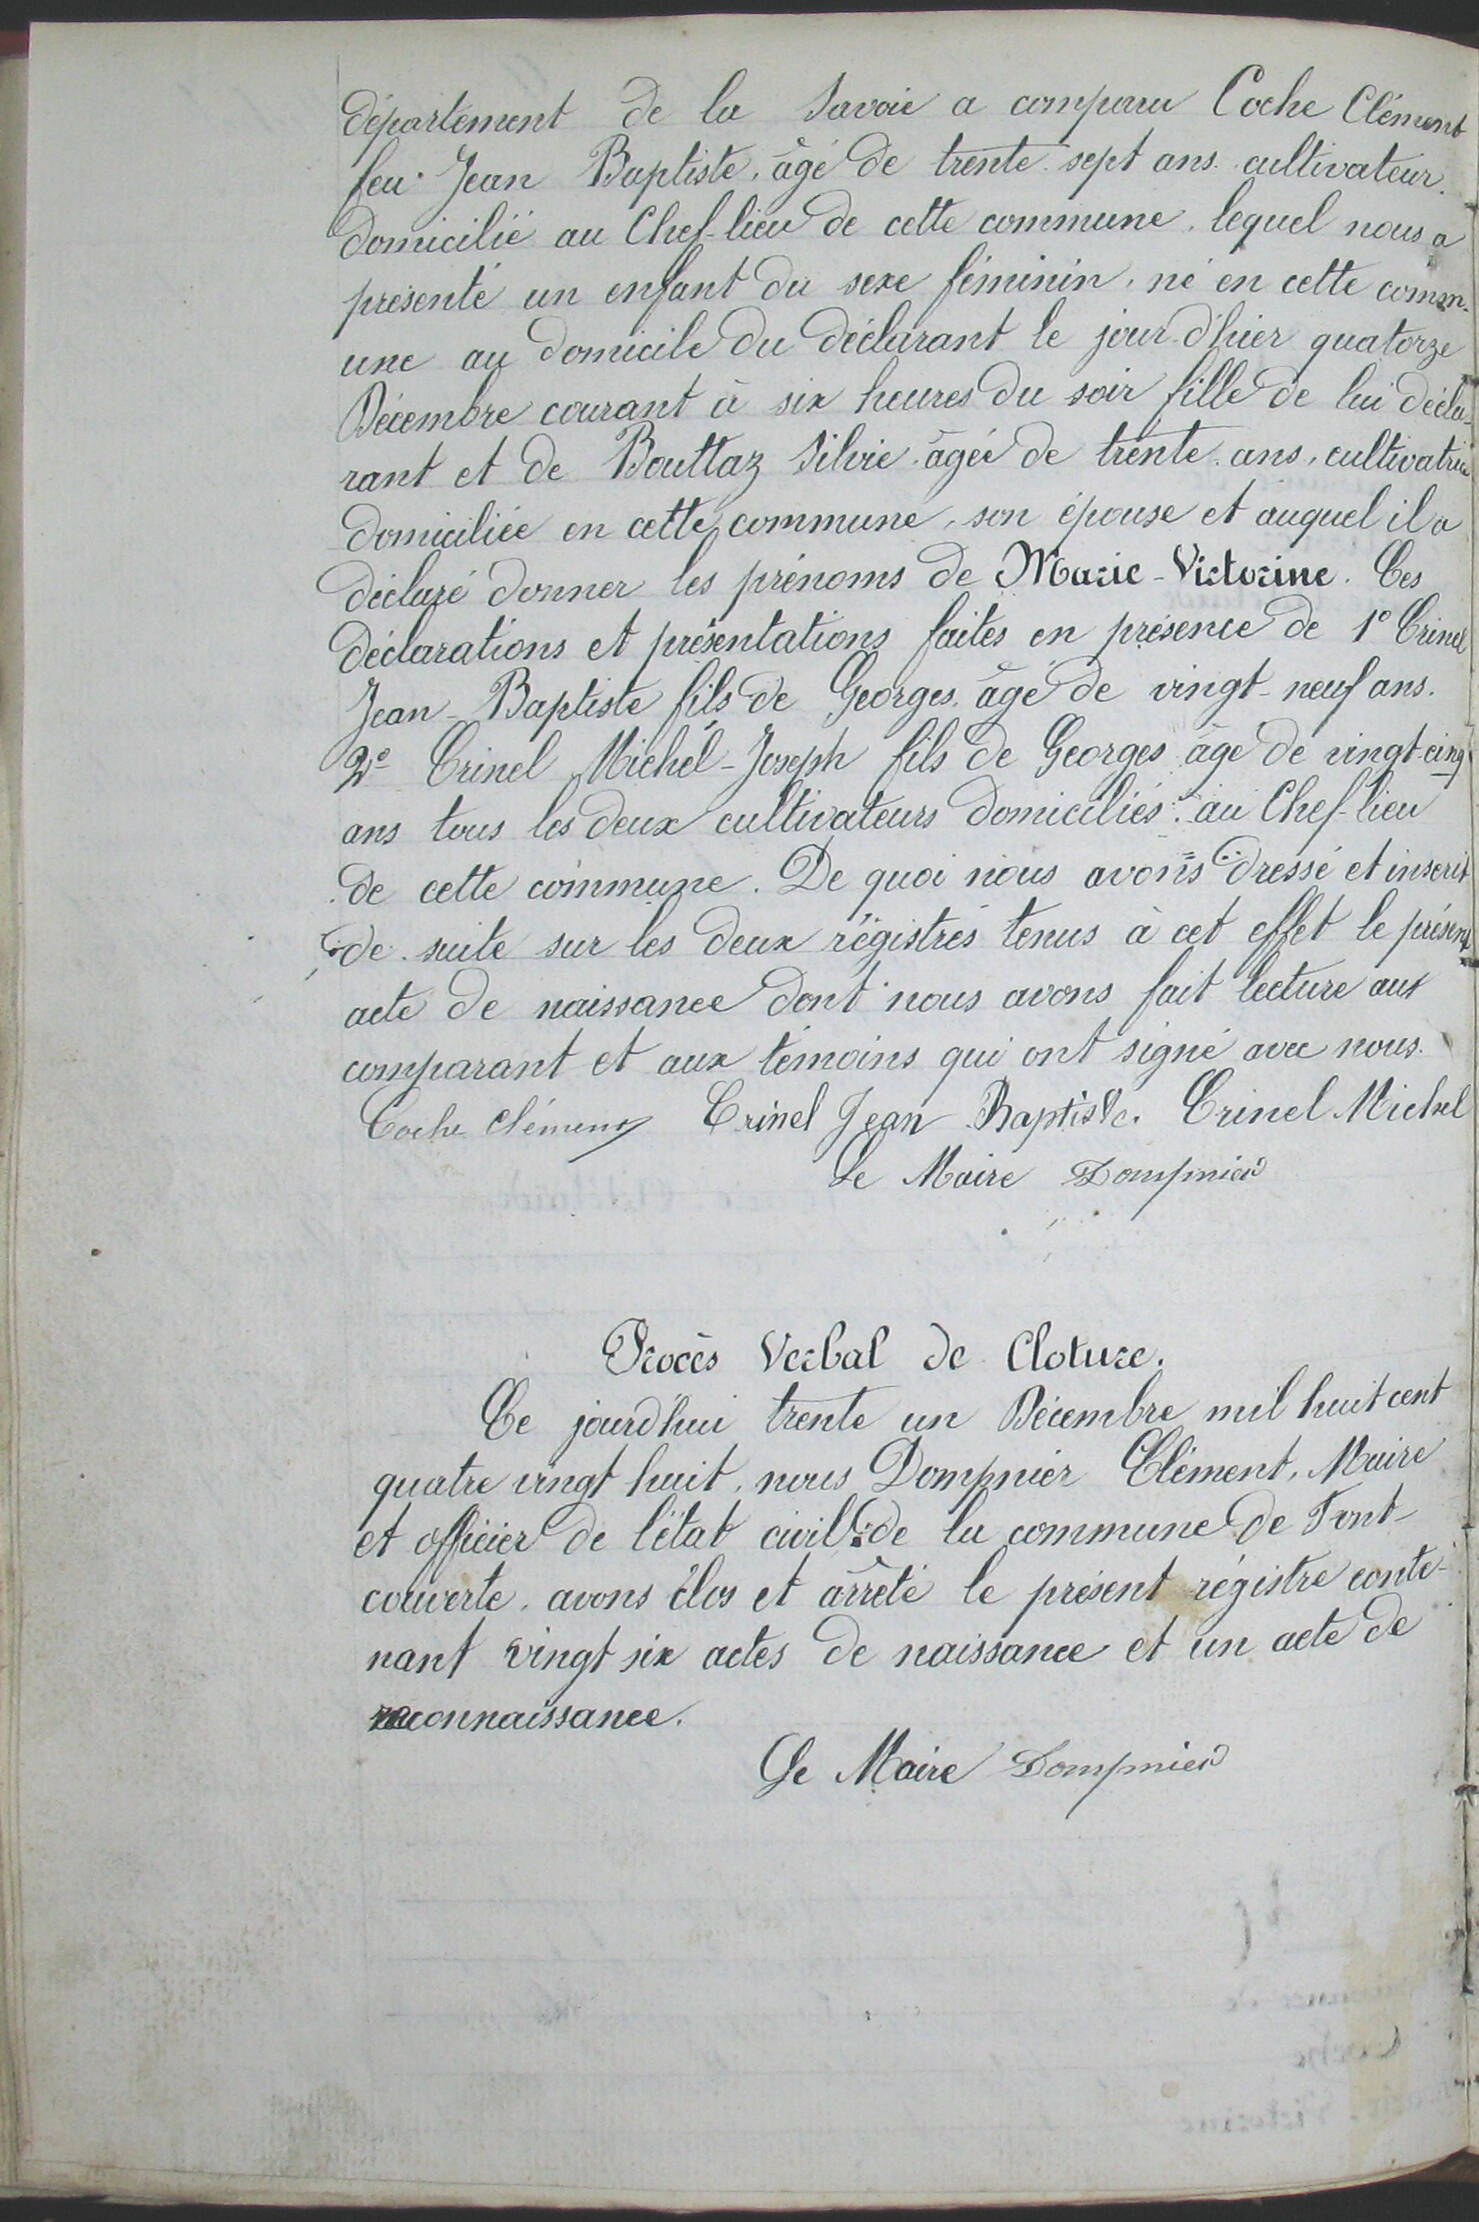 département de la Savoie a comparu Coche Clément
feu Jean Baptiste, âgé de trente sept ans cultivateur.
domicilié au Chef-lieu de cette commune, lequel nous a
présenté un enfant du sexe féminin, né en cette comm-
une au domicile du déclarant le jour d'hier quatorze
Décembre courant à six heures du soir fille de lui décla-
rant et de Bouttaz Silvie âgée de trente ans, cultivatrice
domiciliée en cette commune, son épouse et auquel il a
déclaré donner les prénoms de Marie-Victorine. Ces
déclarations et présentations faites en présence de 1° Crinel
Jean-Baptiste fils de Georges, âgé de vingt-neuf ans.
2° Crinel Michel-Joseph fils de Georges âgé de vingt-cinq
ans tous les deux cultivateurs domiciliés au Chef-lieu
de cette commune. De quoi nous avons dressé et inscrit
de suite sur les deux régistres tenus à cet effet le présent
acte de naissance dont nous avons fait lecture aux
comparant et aux témoins qui ont signé avec nous.
Coche Clément Crinel Jean Baptiste. Crinel Michel
Le Maire Dompnier
Procès Verbal de Cloture.
Ce jourd'hui trente un Décembre mil huit cent
quatre vingt huit, nous Dompnier Clément, Maire
et officier de l'état civil de la commune de Font-
couverte, avons clos et arrêté le présent régistre conte-
nant vingt six actes de naissance et un acte de
reconnaissance.
Le Maire Dompnier